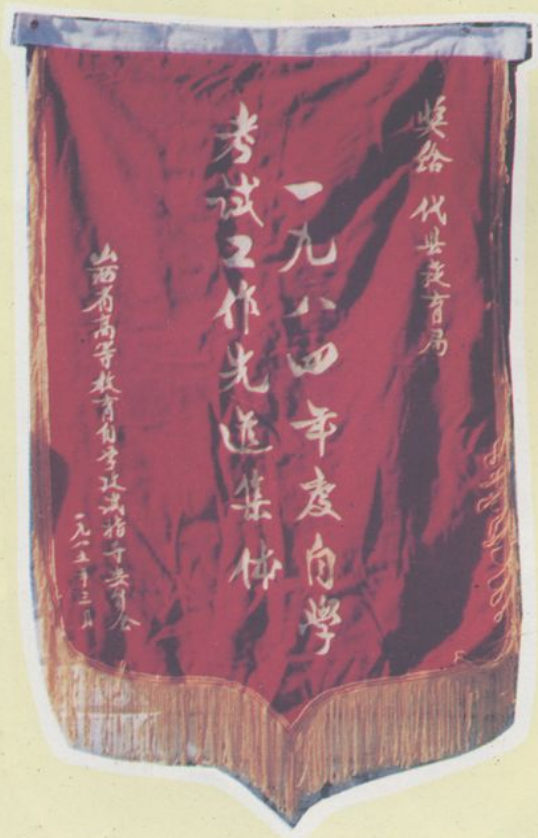 奖给 代县教育局
一九八四年度自學
考试工作先进集体
山西省高等教育自学考试指导委员会
一九八五年三月